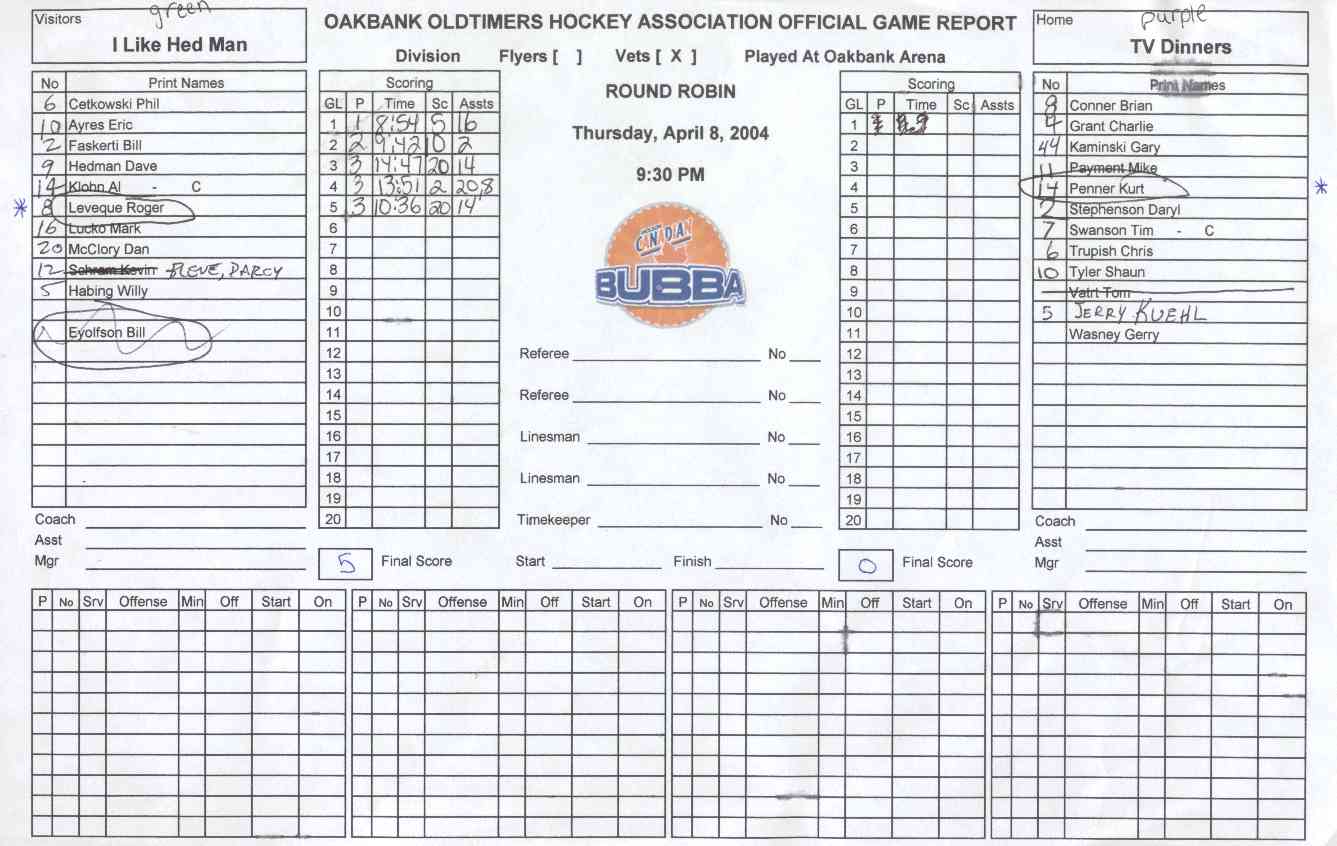 Visitors
green
I Like Hed Man
OAKBANK OLDTIMERS HOCKEY ASSOCIATION OFFICIAL GAME REPORT
Division Flyers [ ] Vets [ X ] Played At Oakbank Arena
Home
purple
TV Dinners
No Print Names
6 Cetkowski Phil
10 Ayres Eric
2 Faskerti Bill
9 Hedman Dave
14 Klohn Al - C
8 Leveque Roger
16 Lucko Mark
20 McClory Dan
12 Schram Kevin FLEVE, DARCY
5 Habing Willy
Eyolfson Bill
Coach
Asst
Mgr
Scoring
GL P Time Sc Assts
1 1 8:54 5 16
2 2 9:42 10 2
3 3 14:47 20 14
4 3 13:51 2 20,8
5 3 10:36 20 14
6
7
8
9
10
11
12
13
14
15
16
17
18
19
20
5 Final Score
ROUND ROBIN
Thursday, April 8, 2004
9:30 PM
CANADIAN
BUBBA
Referee No
Referee No
Linesman No
Linesman No
Timekeeper No
Start Finish
Scoring
GL P Time Sc Assts
1
2
3
4
5
6
7
8
9
10
11
12
13
14
15
16
17
18
19
20
0 Final Score
No Print Names
9 Conner Brian
4 Grant Charlie
44 Kaminski Gary
11 Payment Mike
14 Penner Kurt
2 Stephenson Daryl
7 Swanson Tim - C
6 Trupish Chris
10 Tyler Shaun
Vatrt Tom
5 JERRY KUEHL
Wasney Gerry
Coach
Asst
Mgr
P No Srv Offense Min Off Start On P No Srv Offense Min Off Start On P No Srv Offense Min Off Start On P No Srv Offense Min Off Start On